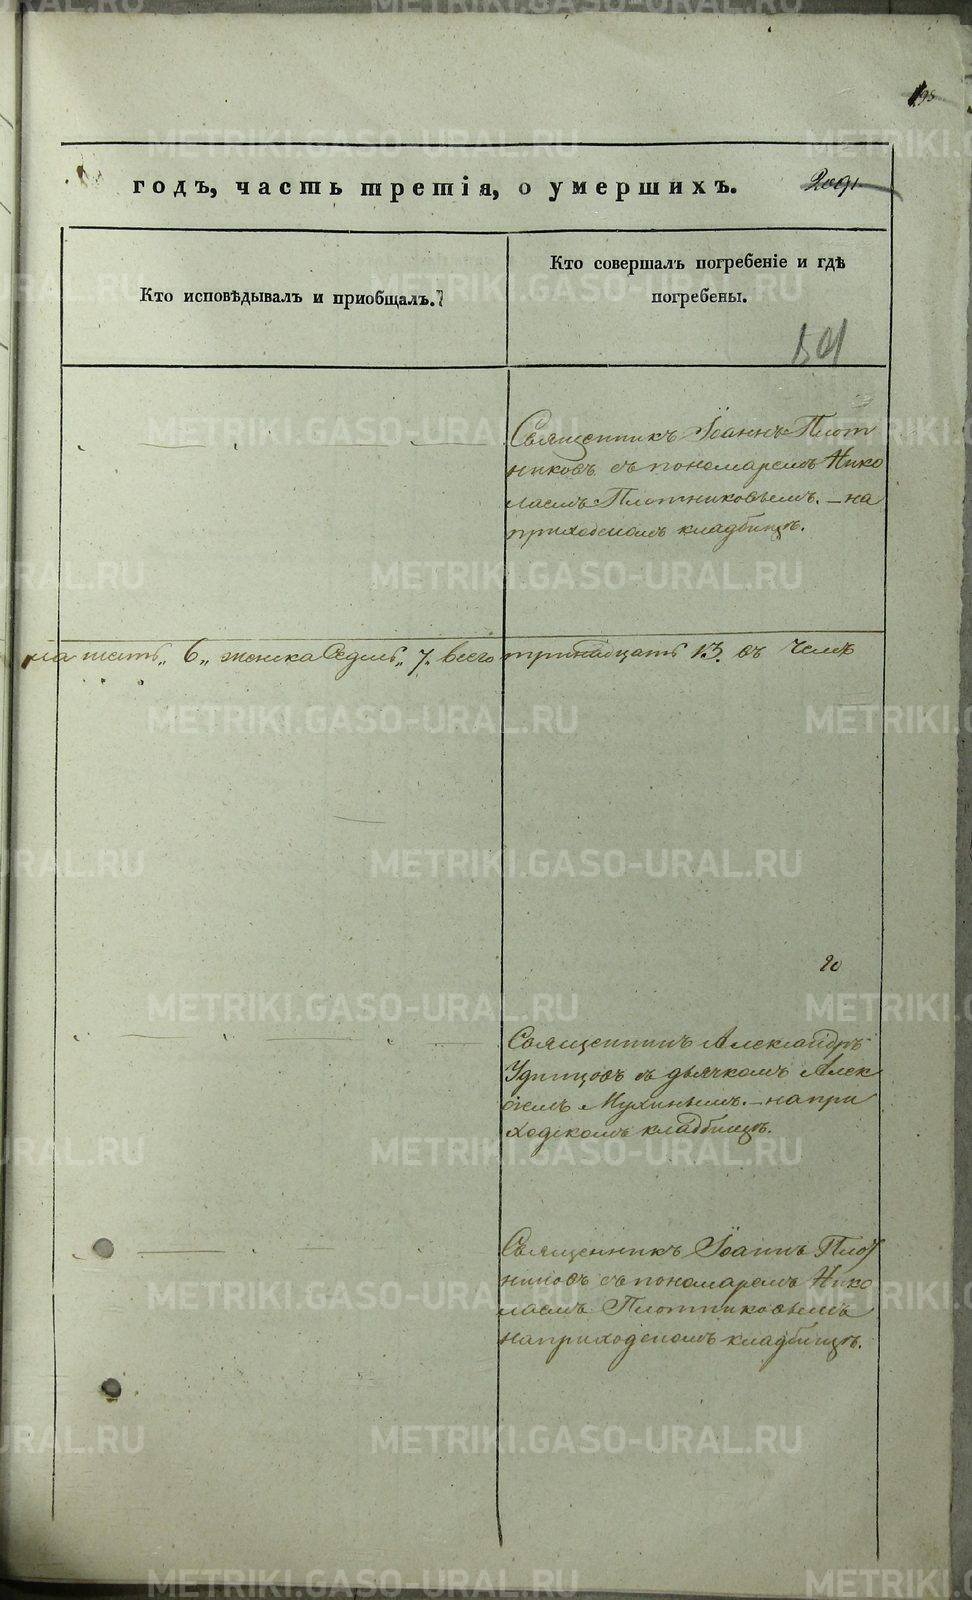 годъ, часть третія, о умершихъ.
Кто исповѣдывалъ и приобщалъ.
Кто совершалъ погребеніе и гдѣ
погребены.
Священникъ Іоаннъ Плот
никовъ съ пономаремъ Нико
лаемъ Плотниковымъ. – на
приходскомъ кладбищѣ.
ла шесть „ 6 „ женска седмь „ 7. всего тринадцать 13. въ
20
Священникъ Александръ
Удинцовъ съ дьячкомъ Алек
сѣемъ Мухинымъ. – на при
ходскомъ кладбищѣ.
Священникъ Іоаннъ Плот
никовъ съ пономаремъ Нико
лаемъ Плотниковымъ
на приходскомъ кладбищѣ.
METRIKI.GASO-URAL.RU